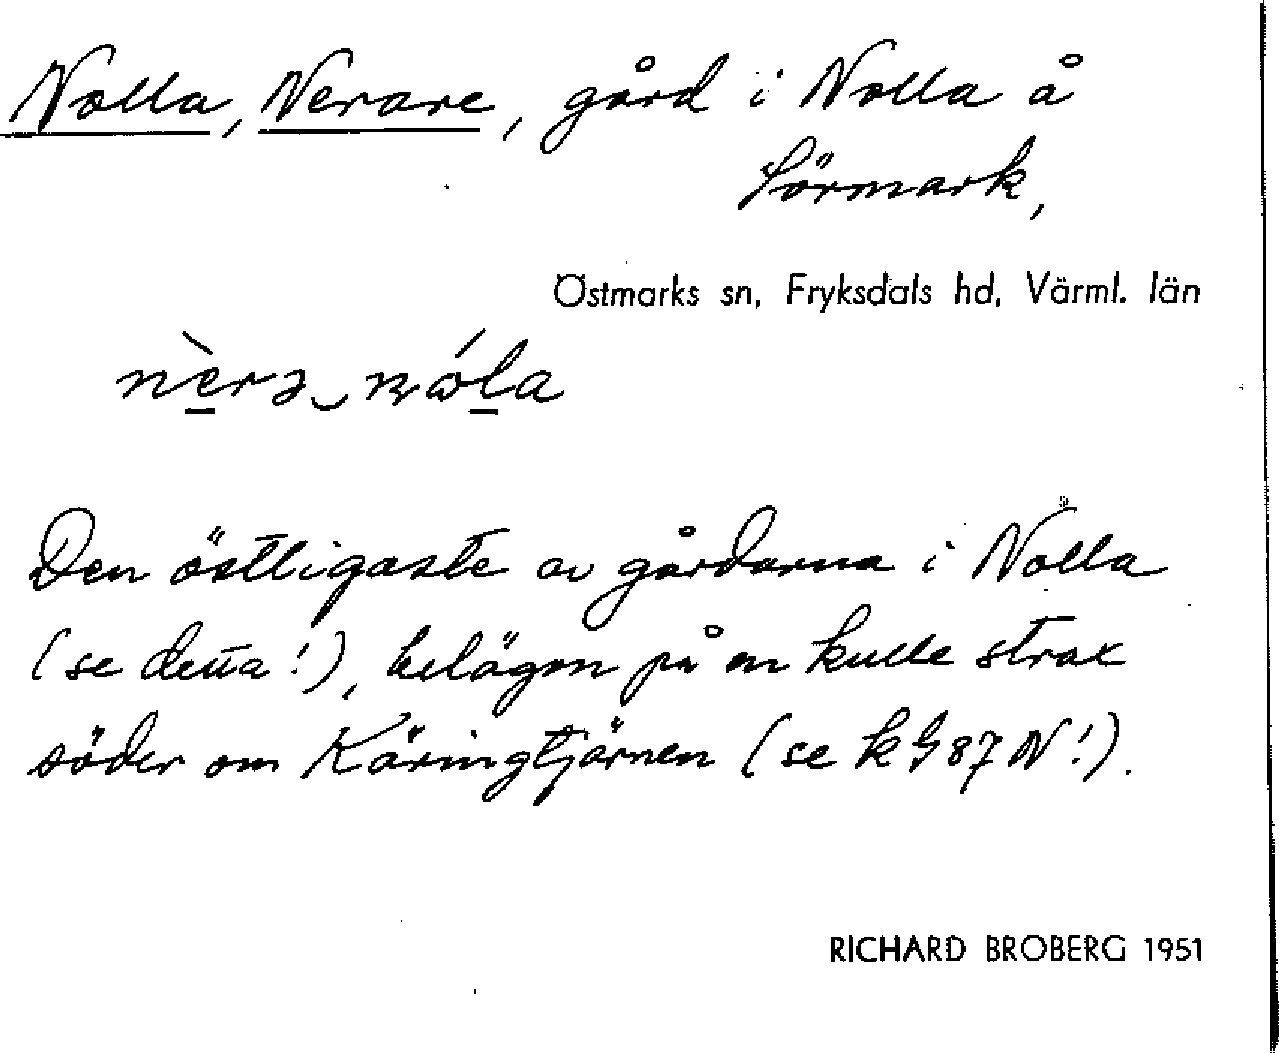 Nolla, Nerare, gård i Nolla å
Sörmark,
Östmarks sn, Fryksdals hd, Värml. län
Den östligaste av gårdarna i Nolla
(se detta!), belägen på en kulle strax
söder om Käringtjärnen (se k 87 N!).
RICHARD BROBERG 1951